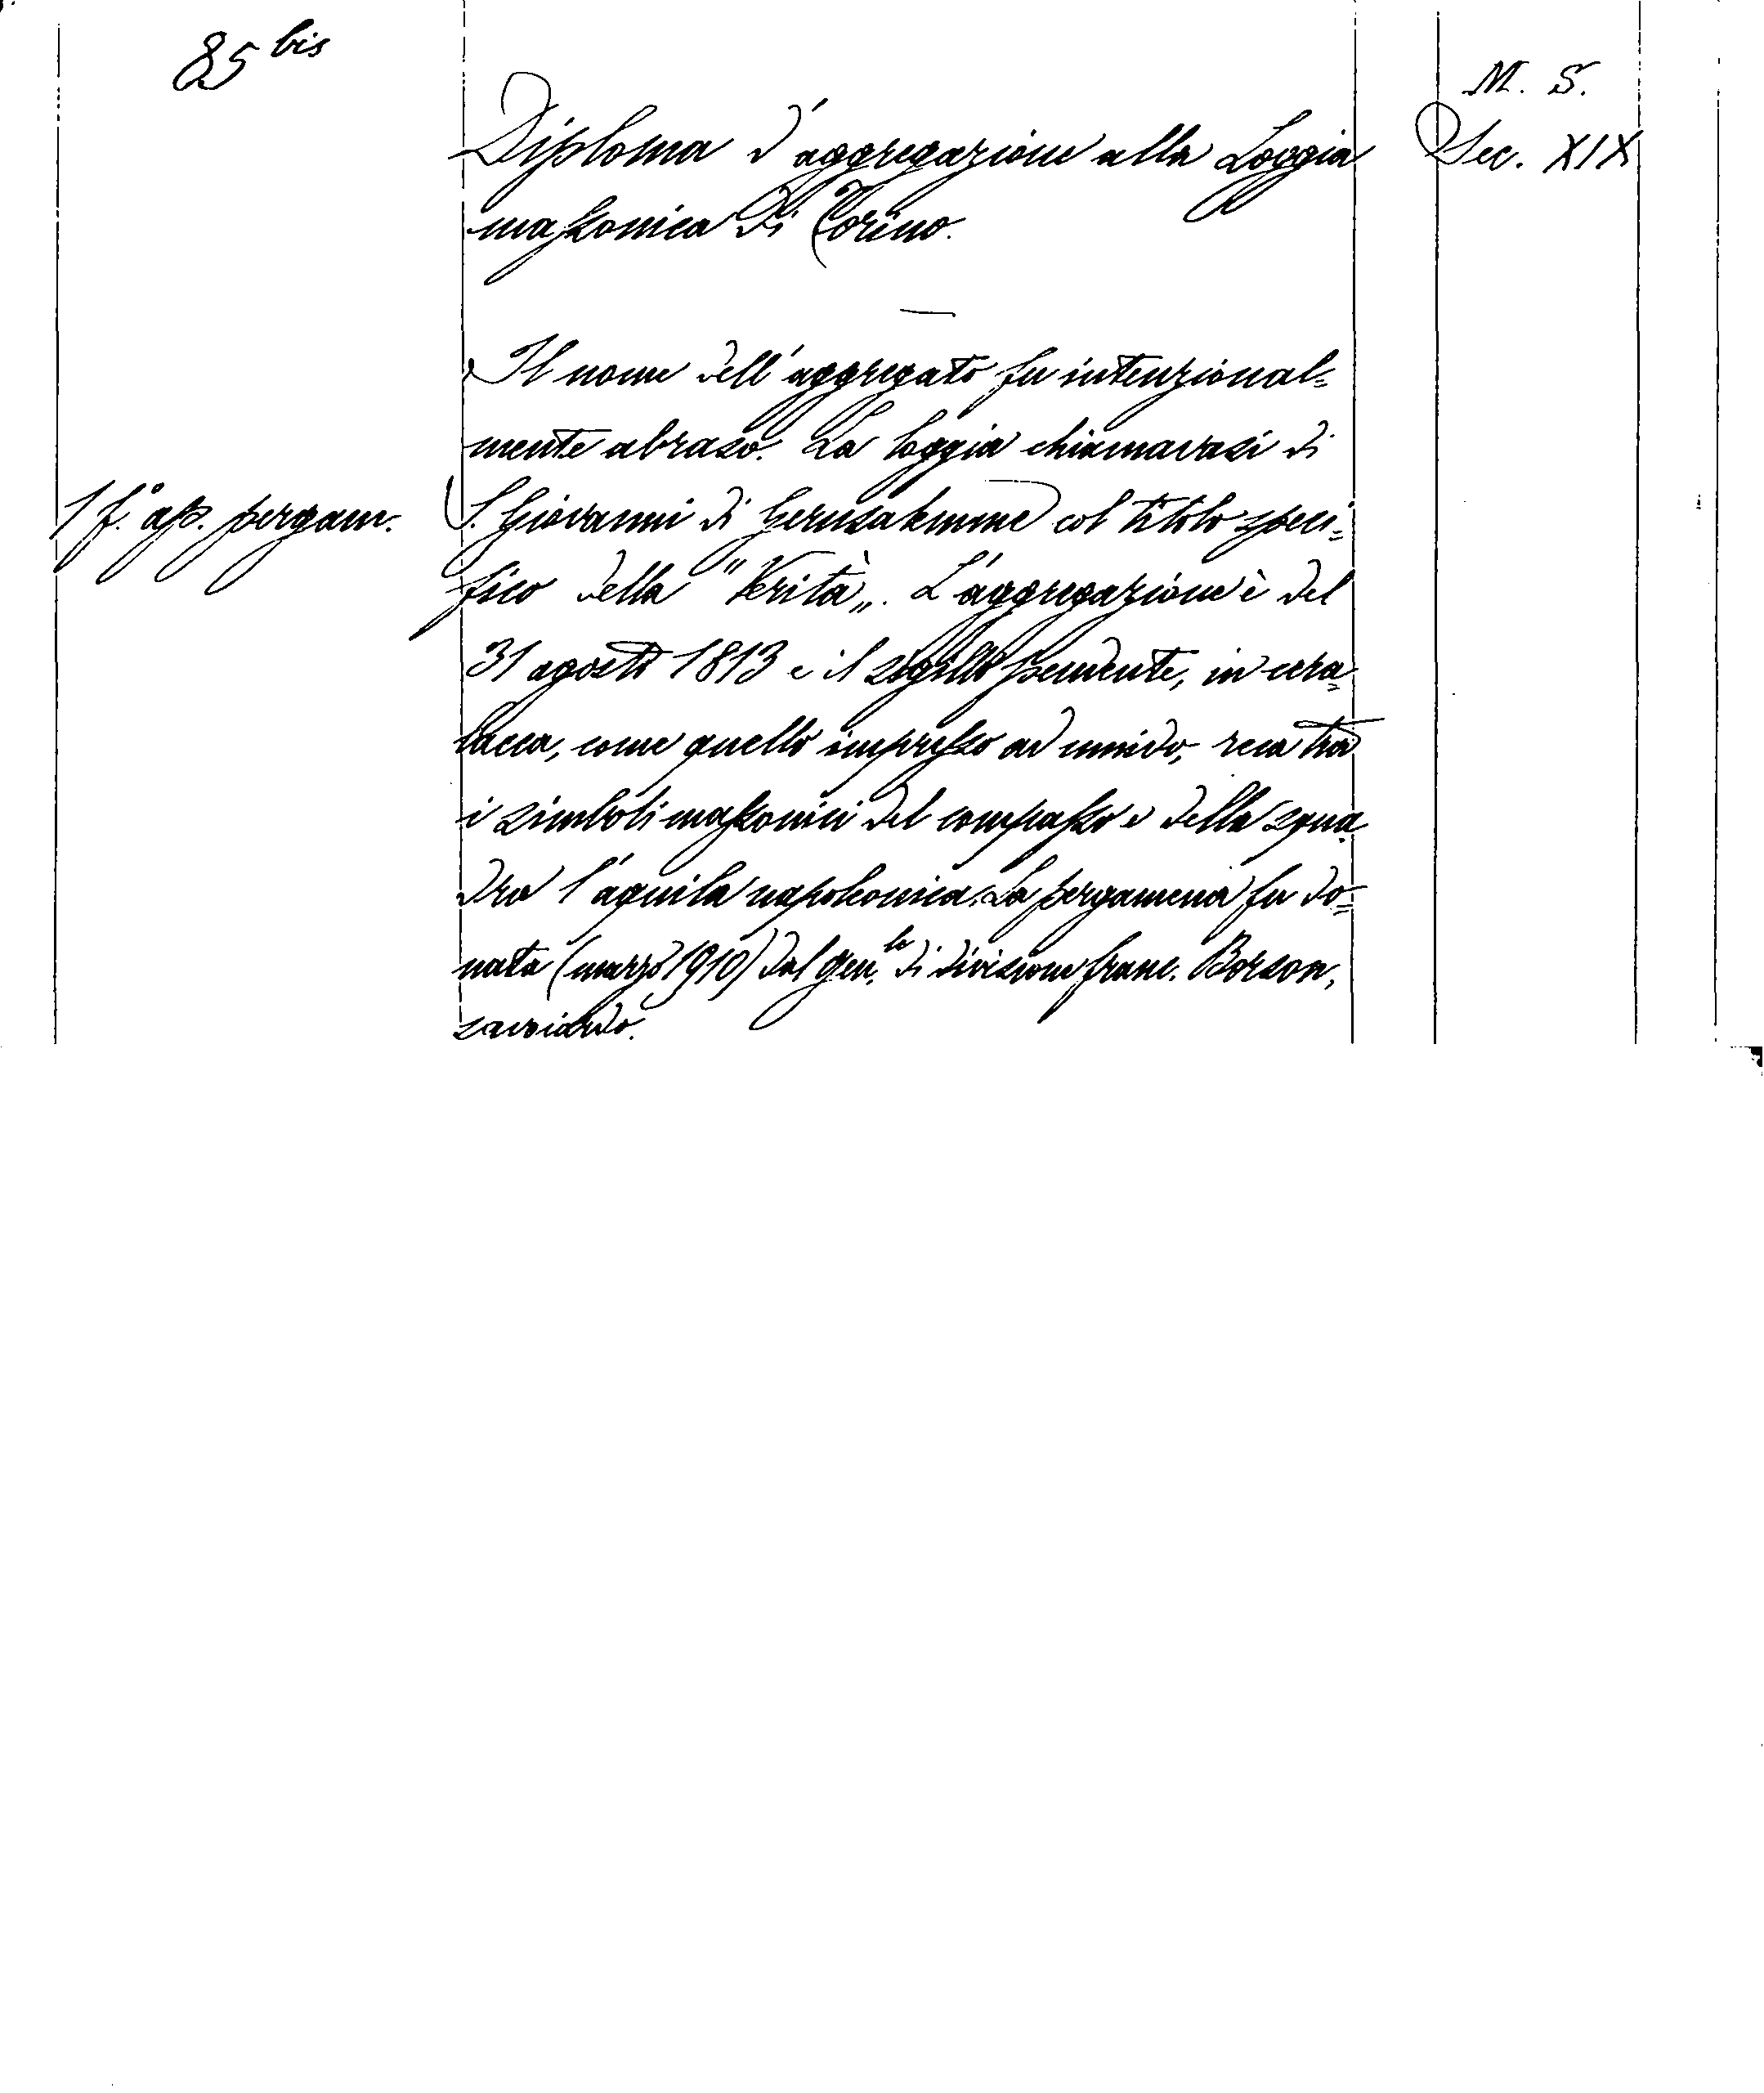 85 bis
M. S.
Diploma d'aggregazione alla Loggia
Sec. XIX
massonica di Torino.
Il nome dell'aggregato fu intenzional=
mente abraso. La loggia chiamavasi di
1 f.° ap. pergam.
S. Giovanni di Gerusalemme col titolo speci=
fico della "Verità„. L'aggregazione è del
31 agosto 1813 e il sigillo pendente, in cera=
lacca, come quello impresso ad umido, reca tra
i simboli massonici del compasso e della squa=
dra l'aquila napoleonica. La pergamena fu do=
nata (marzo 1910) dal gen.le di divisione franc. Borson,
savoiardo.